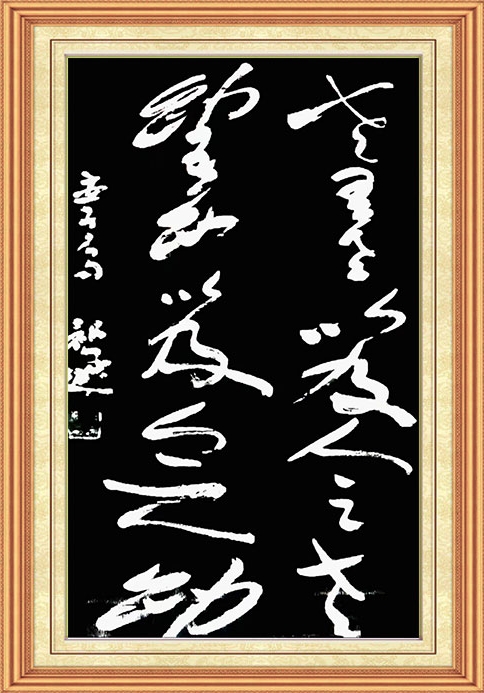 老吾老以及人之老
幼吾幼以及人之幼
孟子